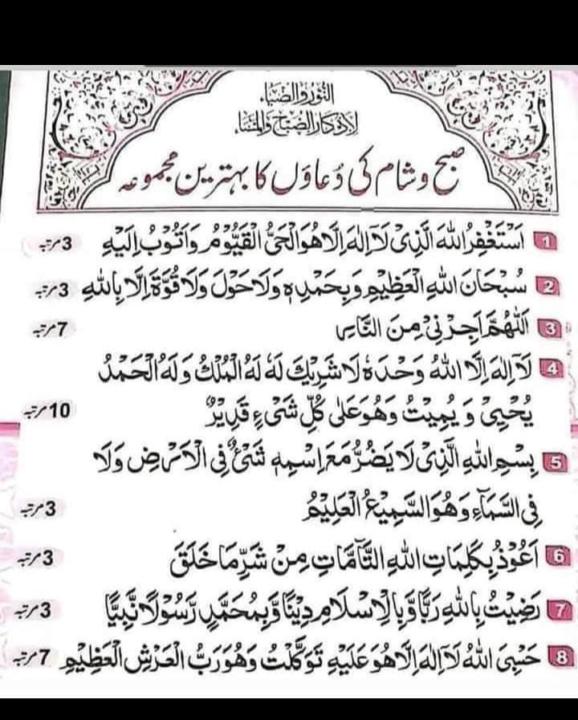 النور والضیاء
لاذکار الصباح والمساء
صبح و شام کی دُعاؤں کا بہترین مجموعہ
1 اَسْتَغْفِرُ اللهَ الَّذِیْ لَآ اِلٰهَ اِلَّا هُوَ الْحَیُّ الْقَیُّوْمُ وَاَتُوْبُ اِلَیْهِ 3 مرتبہ
2 سُبْحَانَ اللهِ الْعَظِیْمِ وَبِحَمْدِهٖ وَلَا حَوْلَ وَلَا قُوَّةَ اِلَّا بِاللهِ 3 مرتبہ
3 اَللّٰهُمَّ اَجِرْنِیْ مِنَ النَّاسِ 7 مرتبہ
4 لَآ اِلٰهَ اِلَّا اللهُ وَحْدَهٗ لَا شَرِیْكَ لَهٗ لَهُ الْمُلْكُ وَلَهُ الْحَمْدُ
یُحْیِیْ وَیُمِیْتُ وَهُوَ عَلٰی كُلِّ شَیْءٍ قَدِیْرٌ 10 مرتبہ
5 بِسْمِ اللهِ الَّذِیْ لَا یَضُرُّ مَعَ اسْمِهٖ شَیْءٌ فِی الْاَرْضِ وَلَا
فِی السَّمَآءِ وَهُوَ السَّمِیْعُ الْعَلِیْمُ 3 مرتبہ
6 اَعُوْذُ بِكَلِمَاتِ اللهِ التَّآمَّاتِ مِنْ شَرِّ مَا خَلَقَ 3 مرتبہ
7 رَضِیْتُ بِاللهِ رَبًّا وَّبِالْاِسْلَامِ دِیْنًا وَّبِمُحَمَّدٍ رَّسُوْلًا نَّبِیًّا 3 مرتبہ
8 حَسْبِیَ اللهُ لَآ اِلٰهَ اِلَّا هُوَ عَلَیْهِ تَوَكَّلْتُ وَهُوَ رَبُّ الْعَرْشِ الْعَظِیْمِ 7 مرتبہ